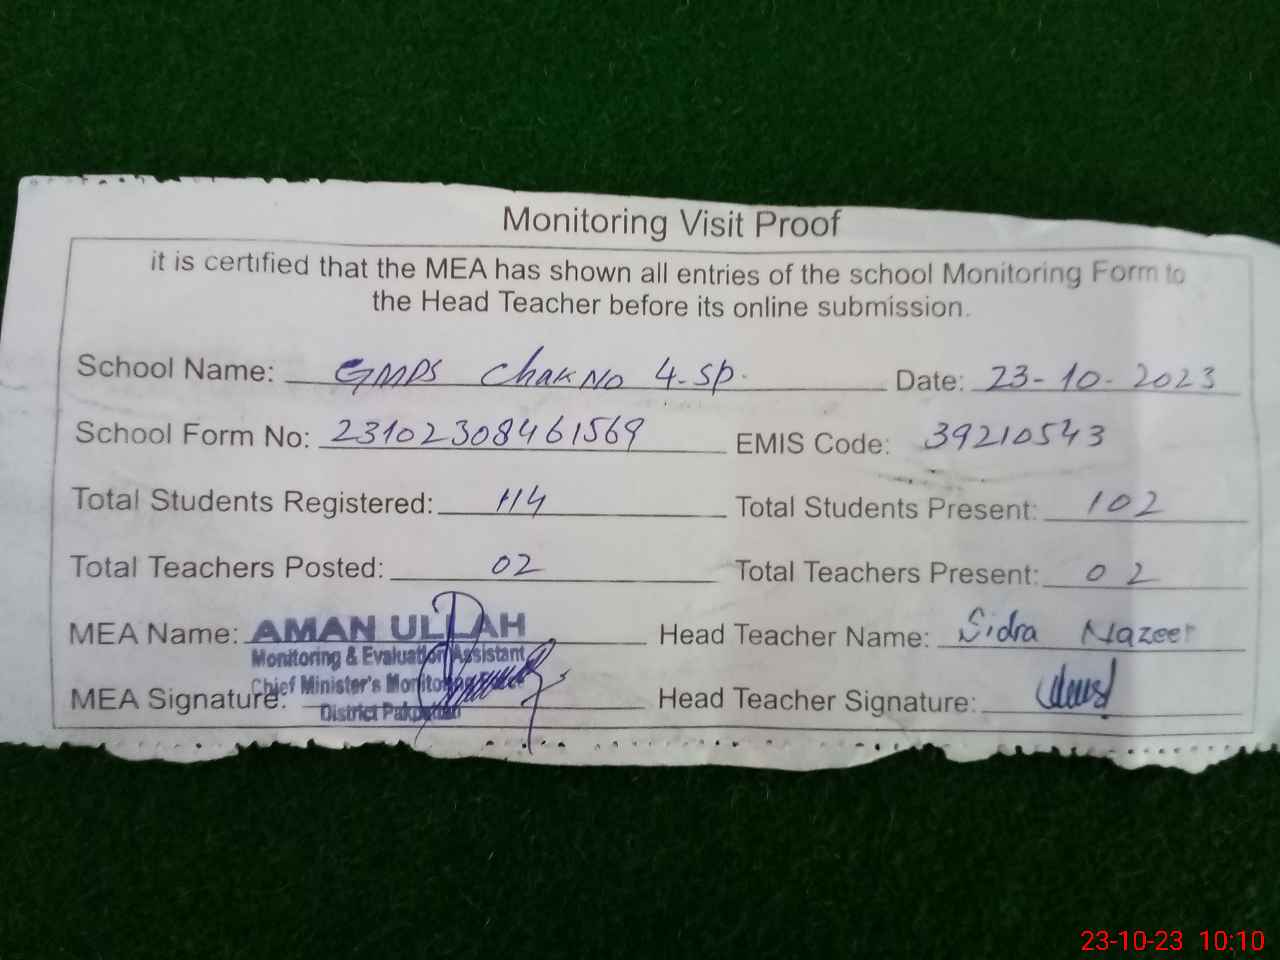 Monitoring Visit Proof
it is certified that the MEA has shown all entries of the school Monitoring Form to
the Head Teacher before its online submission.
School Name: GMPS Chak No 4-SP. Date: 23-10-2023
School Form No: 23102308461569 EMIS Code: 39210543
Total Students Registered: 114 Total Students Present: 102
Total Teachers Posted: 02 Total Teachers Present: 02
MEA Name: AMAN ULLAH Head Teacher Name: Sidra Nazeer
Monitoring & Evaluation Assistant
Chief Minister's Monitoring Force
MEA Signature: Head Teacher Signature:
District Pakpattan
23-10-23 10:10